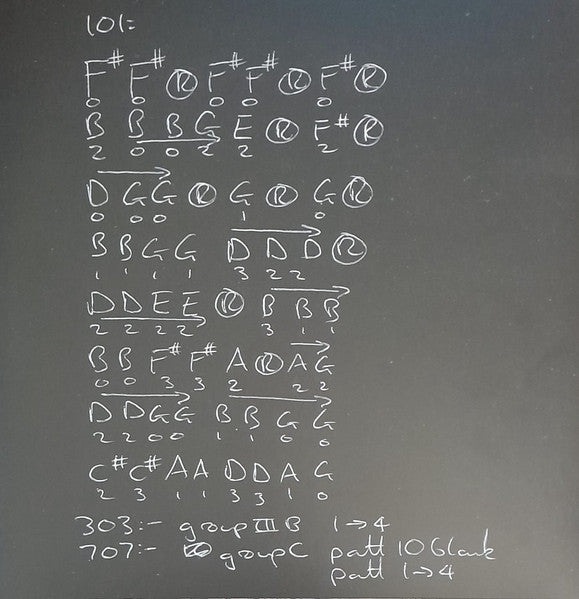 101:-
F# F# Ⓡ F# F# Ⓡ F# Ⓡ
0 0 0 0 0
B B B G E Ⓡ F# Ⓡ
2 0 0 2 2 2
D G G Ⓡ G Ⓡ G Ⓡ
0 0 0 1 0
B B G G D D D Ⓡ
1 1 1 1 3 2 2
D D E E Ⓡ B B B
2 2 2 2 3 1 1
B B F# F# A Ⓡ A G
0 0 3 3 2 2 2
D D G G B B G G
2 2 0 0 1 1 0 0
C# C# A A D D A G
2 3 1 1 3 3 1 0
303:- group III B 1→4
707:- group C patt 10 Blank
patt 1→4